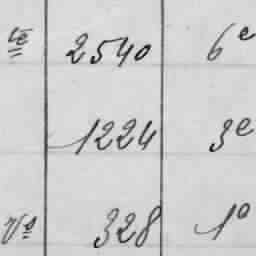 2540 6e
1224 3e
Vo 328 1o